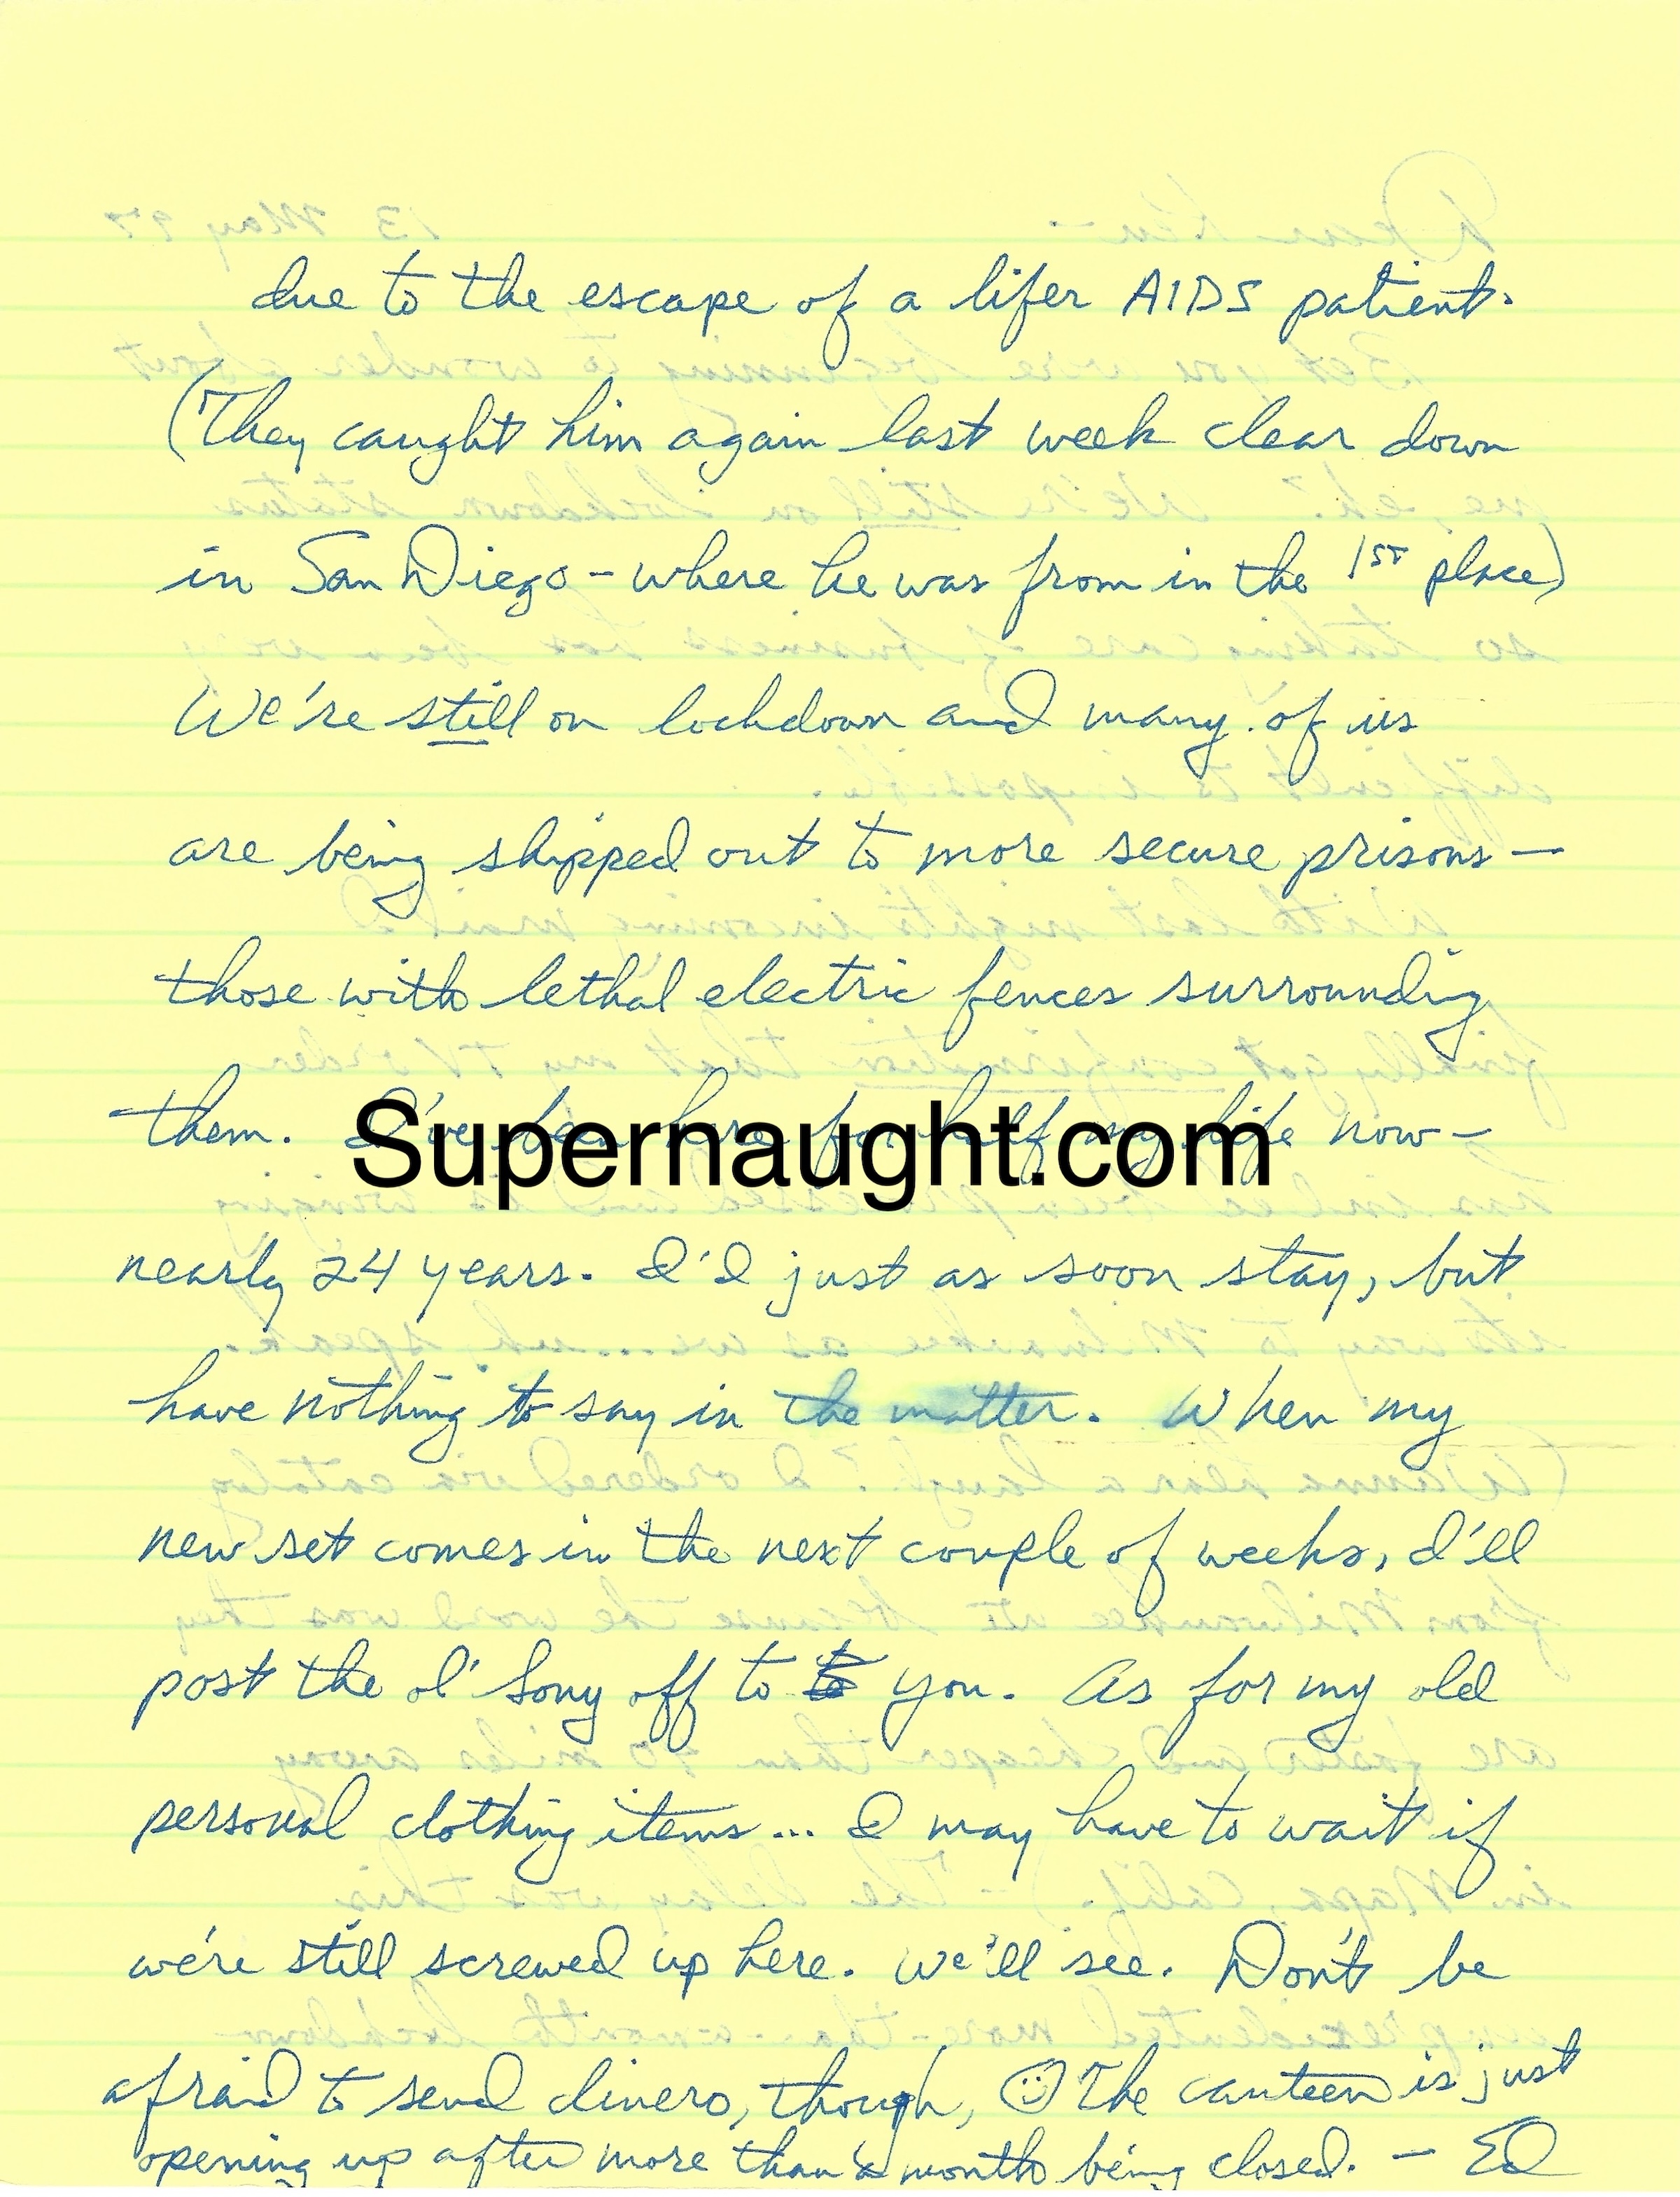 due to the escape of a lifer AIDS patient.
(They caught him again last week clear down
in San Diego - where he was from in the 1ST place)
We're still on lockdown and many of us
are being shipped out to more secure prisons —
those with lethal electric fences surrounding
them. I've been here for half my life now —
Supernaught.com
nearly 24 years. I'd just as soon stay, but
have nothing to say in the matter. When my
new set comes in the next couple of weeks, I'll
post the ol' Sony off to to you. As for my old
personal clothing items... I may have to wait if
we're still screwed up here. We'll see. Don't be
afraid to send dinero, though, ☺ The canteen is just
opening up after more than a month being closed. — Ed